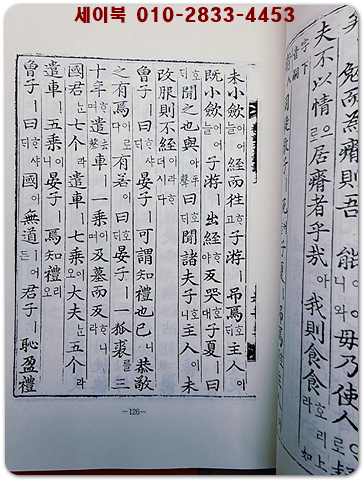 而爲瘠則吾ㅣ 能이어니와 毋乃
夫不以情으로 居瘠者乎哉아 我則食食호리라
未小斂이어늘 絰而往고 子游ㅣ 吊焉 主人이
既小斂이어늘 子游ㅣ 出絰야 反哭 子夏ㅣ 曰
聞之也與아 曰 聞諸夫子호니 主人이 未
改服則不絰이러시다
曾子ㅣ 曰 晏子ㅣ 可謂知禮也已니 恭敬
之有焉이로다 有若ㅣ 曰 晏子ㅣ 一狐裘를 三
十年며 遣車一乘며 及墓而反니라
國君은 七个라 遣車ㅣ 七乘오 大夫 五个라
遣車ㅣ 五乘니 晏子ㅣ 焉知禮리오
曾子ㅣ 曰 國無道ㅣ어든 君子ㅣ 恥盈禮
—126—
세이북 010-2833-4453